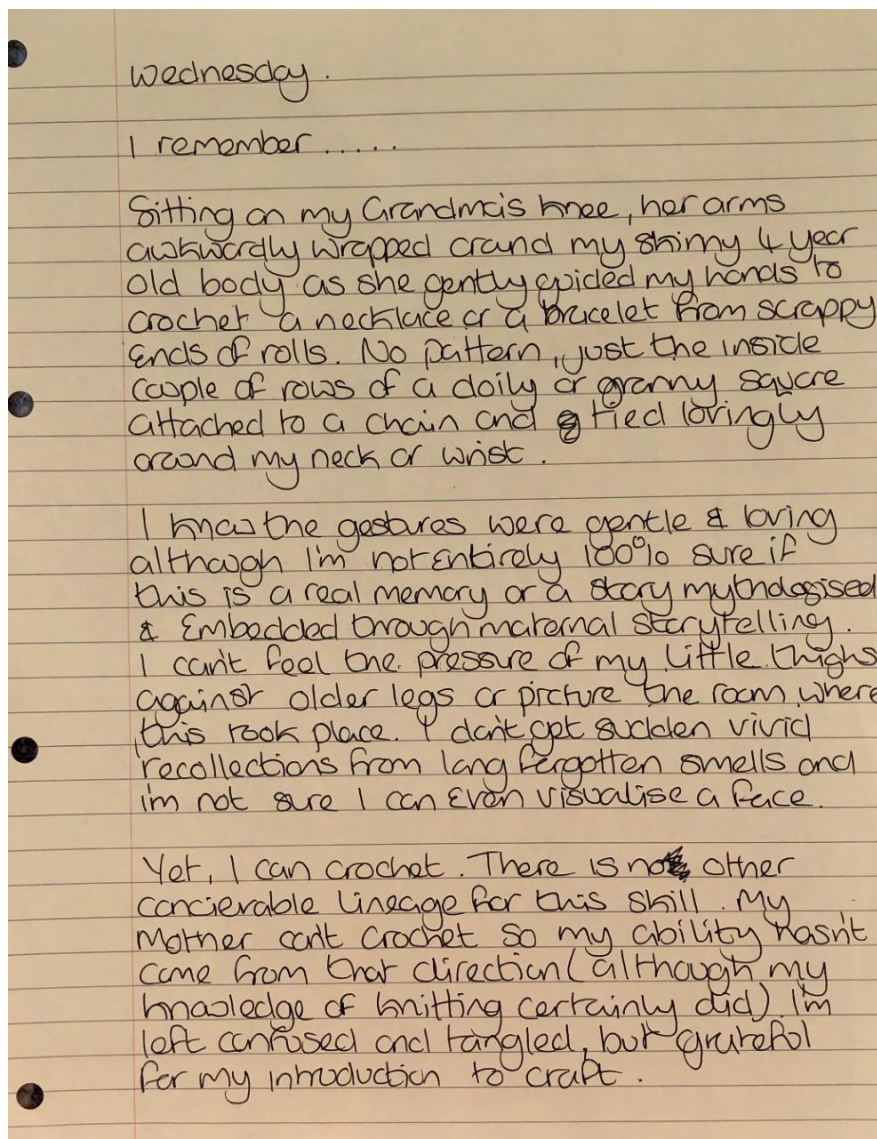 Wednesday.
I remember.....
Sitting on my Grandma's knee, her arms
awkwardly wrapped around my skinny 4 year
old body as she gently guided my hands to
crochet a necklace or a bracelet from scrappy
ends of rolls. No pattern, just the inside
couple of rows of a doily or granny square
attached to a chain and tied lovingly
around my neck or wrist.
I know the gestures were gentle & loving
although I'm not entirely 100% sure if
this is a real memory or a story mythologised
& Embedded through maternal storytelling.
I can't feel the pressure of my little thighs
against older legs or picture the room where
this took place. I don't get sudden vivid
recollections from long forgotten smells and
i'm not sure I can even visualise a face.
Yet, I can crochet. There is no other
concievable lineage for this skill. My
Mother can't crochet so my ability hasn't
come from that direction (although my
knowledge of knitting certainly did). I'm
left confused and tangled, but grateful
for my introduction to craft.